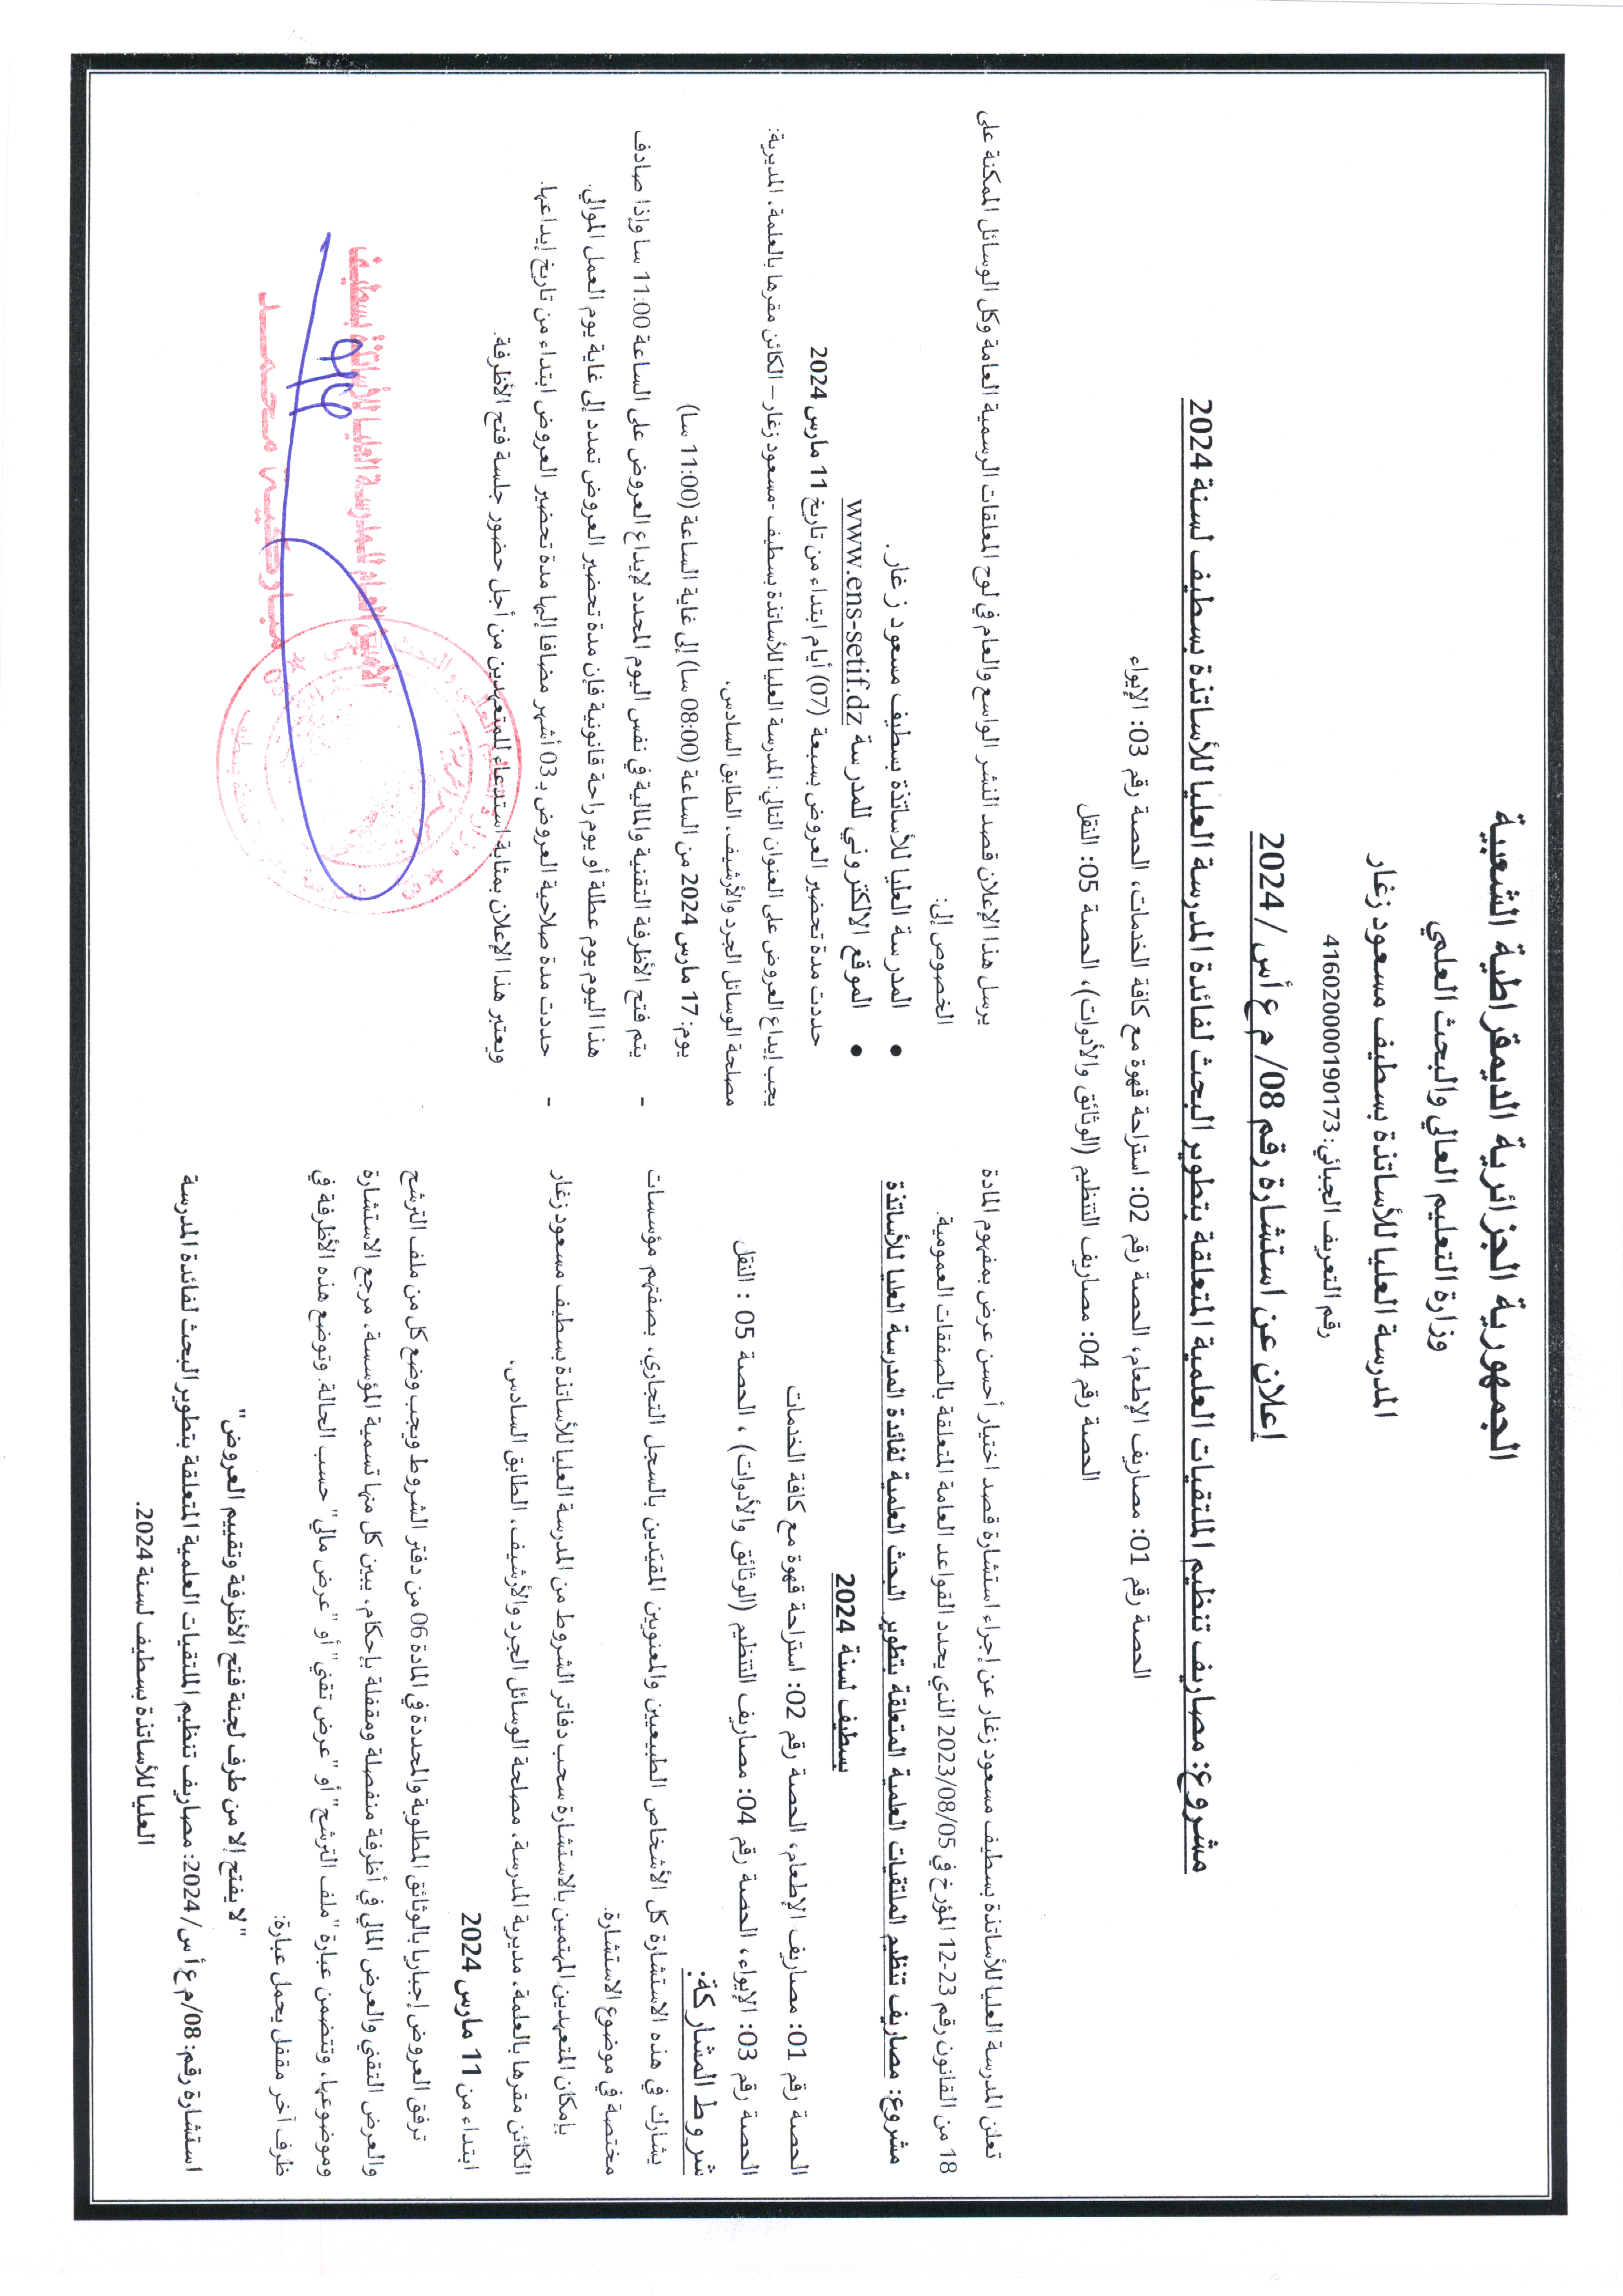 الجمهورية الجزائرية الديمقراطية الشعبية
وزارة التعليم العالي والبحث العلمي
المدرسة العليا للأساتذة بسطيف مسعود زغار
رقم التعريف الجبائي: 416020000190173
إعلان عن استشارة رقم 08/ م ع أس / 2024
مشروع: مصاريف تنظيم الملتقيات العلمية المتعلقة بتطوير البحث لفائدة المدرسة العليا للأساتذة بسطيف لسنة 2024
الحصة رقم 01: مصاريف الإطعام، الحصة رقم 02: استراحة قهوة مع كافة الخدمات، الحصة رقم 03: الإيواء
الحصة رقم 04: مصاريف التنظيم (الوثائق والأدوات)، الحصة 05: النقل
تعلن المدرسة العليا للأساتذة بسطيف مسعود زغار عن إجراء استشارة قصد اختيار أحسن عرض بمفهوم المادة
18 من القانون رقم 23-12 المؤرخ في 2023/08/05 الذي يحدد القواعد العامة المتعلقة بالصفقات العمومية.
مشروع: مصاريف تنظيم الملتقيات العلمية المتعلقة بتطوير البحث العلمية لفائدة المدرسة العليا للأساتذة
بسطيف لسنة 2024
الحصة رقم 01: مصاريف الإطعام، الحصة رقم 02: استراحة قهوة مع كافة الخدمات
الحصة رقم 03: الإيواء، الحصة رقم 04: مصاريف التنظيم (الوثائق والأدوات) ، الحصة 05 : النقل
شروط المشاركة:
يشارك في هذه الاستشارة كل الأشخاص الطبيعيين والمعنويين المقيدين بالسجل التجاري، بصفتهم مؤسسات
مختصة في موضوع الاستشارة.
بإمكان المتعهدين المهتمين بالاستشارة سحب دفاتر الشروط من المدرسة العليا للأساتذة بسطيف مسعود زغار
الكائن مقرها بالعلمة، مديرية المدرسة، مصلحة الوسائل الجرد والأرشيف، الطابق السادس،
ابتداء من 11 مارس 2024
ترفق العروض إجباريا بالوثائق المطلوبة والمحددة في المادة 06 من دفتر الشروط ويجب وضع كل من ملف الترشح
والعرض التقني والعرض المالي في أظرفة منفصلة ومقفلة بإحكام، يبين كل منها تسمية المؤسسة، مرجع الاستشارة
وموضوعها، وتتضمن عبارة "ملف الترشح" أو "عرض تقني" أو "عرض مالي" حسب الحالة. وتوضع هذه الأظرفة في
ظرف آخر مقفل يحمل عبارة:
"لا يفتح إلا من طرف لجنة فتح الأظرفة وتقييم العروض"
استشارة رقم: 08/م ع أ س/ 2024: مصاريف تنظيم الملتقيات العلمية المتعلقة بتطوير البحث لفائدة المدرسة
العليا للأساتذة بسطيف لسنة 2024.
يرسل هذا الإعلان قصد النشر الواسع والعام في لوح المعلقات الرسمية العامة وكل الوسائل الممكنة على
الخصوص إلى:
• المدرسة العليا للأساتذة بسطيف مسعود زغار .
• الموقع الالكتروني للمدرسة www.ens-setif.dz
حددت مدة تحضير العروض بسبعة (07) أيام ابتداء من تاريخ 11 مارس 2024
يجب إيداع العروض على العنوان التالي: المدرسة العليا للأساتذة بسطيف -مسعود زغار – الكائن مقرها بالعلمة، المديرية:
مصلحة الوسائل الجرد والأرشيف، الطابق السادس،
يوم: 17 مارس 2024 من الساعة (08:00 سا) إلى غاية الساعة (11:00 سا)
- يتم فتح الأظرفة التقنية والمالية في نفس اليوم المحدد لإيداع العروض على الساعة 11:00 سا وإذا صادف
هذا اليوم يوم عطلة أو يوم راحة قانونية فإن مدة تحضير العروض تمدد إلى غاية يوم العمل الموالي.
- حددت مدة صلاحية العروض بـ 03 أشهر مضافا إليها مدة تحضير العروض ابتداء من تاريخ إيداعها.
ويعتبر هذا الإعلان بمثابة استدعاء للمتعهدين من أجل حضور جلسة فتح الأظرفة.
الأمين العام للمدرسة العليا للأساتذة بسطيف
مباركية محمد